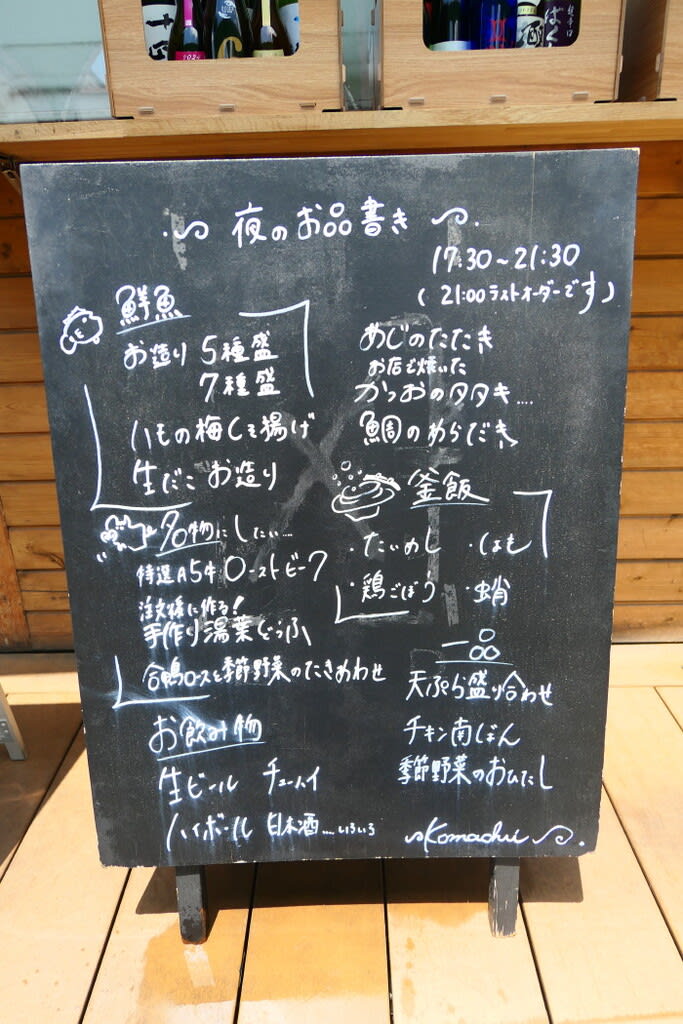 夜のお品書き
17:30~21:30
(21:00 ラストオーダーです)
鮮魚
お造り 5種盛
7種盛
はもの梅しそ揚げ
生だこ お造り
あじのたたき
お店で焼いた
かつおのタタキ....
鯛のあらだき
釜飯
・たいめし ・はも
・鶏ごぼう ・蛸
名物にしたい....
特選A5牛ローストビーフ
注文後に作る!
手作り湯葉どうふ
合鴨ロースと季節野菜のたきあわせ
一品
天ぷら盛り合わせ
チキン南ばん
季節野菜のおひたし
お飲み物
生ビール チューハイ
ハイボール 日本酒....いろいろ
Komachi